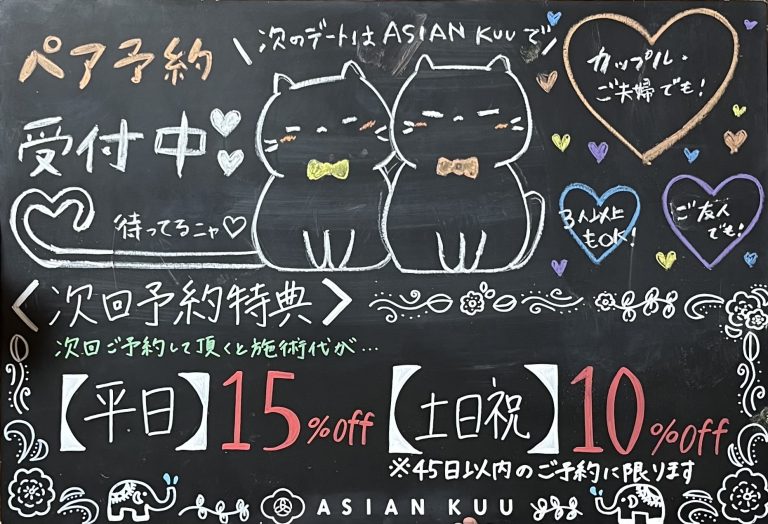 ペア予約
受付中
次のデートは ASIAN KUU で
カップル・
ご夫婦でも!
3人以上
もOK!
ご友人
でも!
待ってるニャ♡
〈次回予約特典〉
次回ご予約して頂くと施術代が…
【平日】15%off
【土日祝】10%off
※45日以内のご予約に限ります
ASIAN KUU